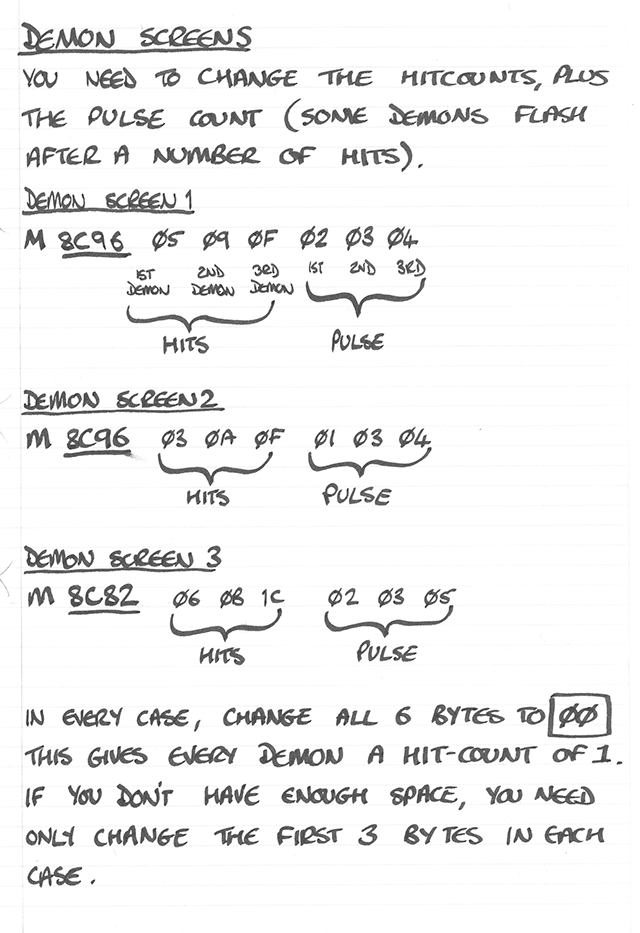 DEMON SCREENS
YOU NEED TO CHANGE THE HITCOUNTS, PLUS
THE PULSE COUNT (SOME DEMONS FLASH
AFTER A NUMBER OF HITS).
DEMON SCREEN 1
M 8C96 05 09 0F 02 03 04
1ST DEMON 2ND DEMON 3RD DEMON 1ST 2ND 3RD
HITS PULSE
DEMON SCREEN 2
M 8C96 03 0A 0F 01 03 04
HITS PULSE
DEMON SCREEN 3
M 8C82 06 0B 1C 02 03 05
HITS PULSE
IN EVERY CASE, CHANGE ALL 6 BYTES TO 00
THIS GIVES EVERY DEMON A HIT-COUNT OF 1.
IF YOU DON'T HAVE ENOUGH SPACE, YOU NEED
ONLY CHANGE THE FIRST 3 BYTES IN EACH
CASE.